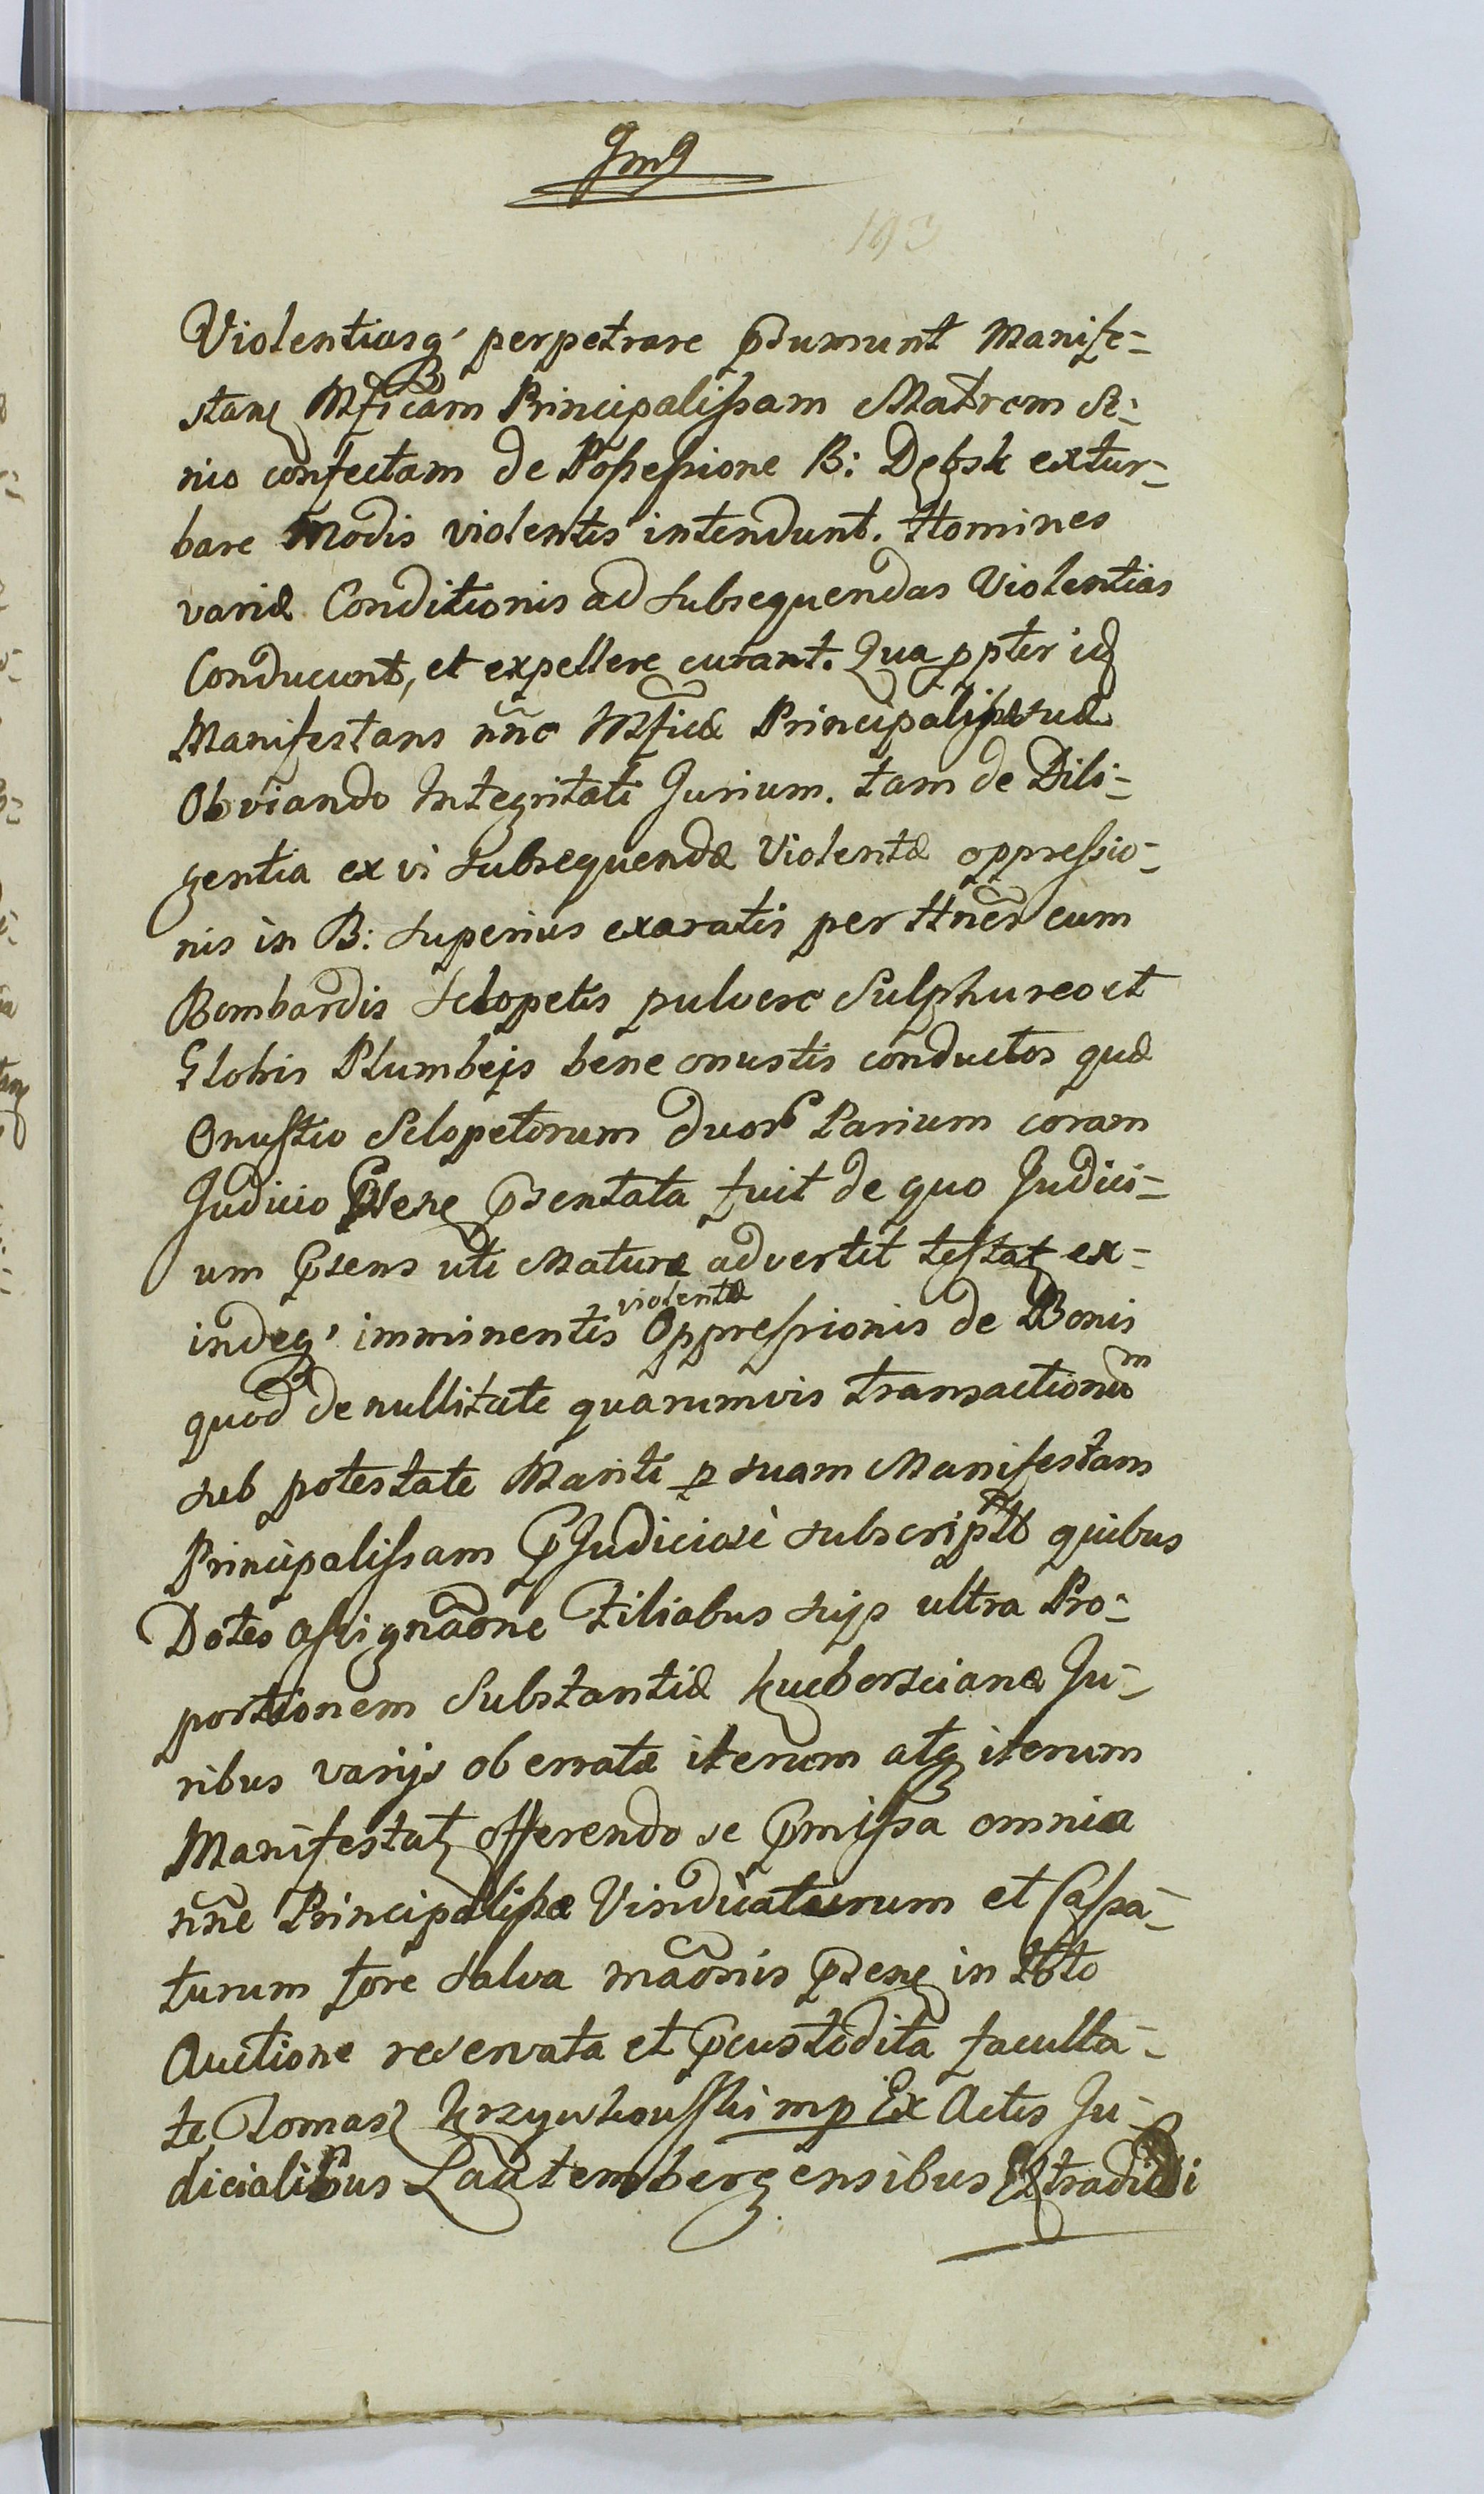 193
Violentiasq' perpetrare pr̃sumunt Manife-
stanz Mficam Principalissam Matrem Se-
nio confectam de Possessione B: Dębsk extur-
bare Modis violentis intendunt. Homines
variæ Conditionis ad subsequendas Violentias
Conducunt, et expellere curant. Qua ppter id
Manifestans nñe Mficæ Principalissæ suæ
Obviando Integritati Jurium. tam de Dili-
gentia ex vi subsequendæ Violentæ oppressio-
nis in B: superius exaratis per Hñes cum
Bombardis sclopetis pulvere Sulphureo et
Globis Plumbejs bene onustis conductos quæ
Onustio Sclopetorum duor Parium coram
Judicio Psenz pr̃sentata fuit de quo Judici-
um Pr̃sens uti Mature advertit testatz ex-
indeq' imminentis violentæ Oppressionis de Bonis
quod de nullitate quarumvis transactionum
sub potestate Mariti p suam Manifestans
Principalissam PrJudiciose subscript quibus
Dotes assignaõne Filiabus suis ultra Pro-
portionem Substantiæ Kucborscianæ Ju-
ribus varijs ob errata iterum atq iterum
Manifestatz offerendo se Pr̃missa omnia
nñe Principalissæ Vindicaturum et Cassa-
turum fore salva maõnis pr̃senz in toto
Auctione reservata et pr̃custodita faculta-
te Tomasz Krzywkowski mp Ex Actis Ju-
dicialibus Lautembergensibus Extradidi